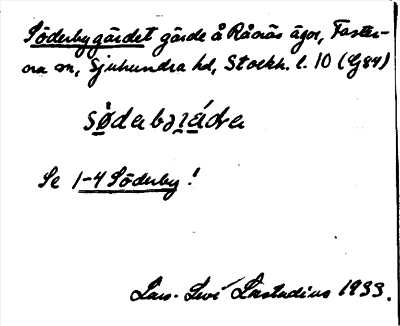 Söderbygärdet gärde å Rånäs ägor, Faster-
na sn, Sjuhundra hd, Stockh. l. 10 (G84)
Se 1-4 Söderby!
Lars-Levi Læstadius 1933.